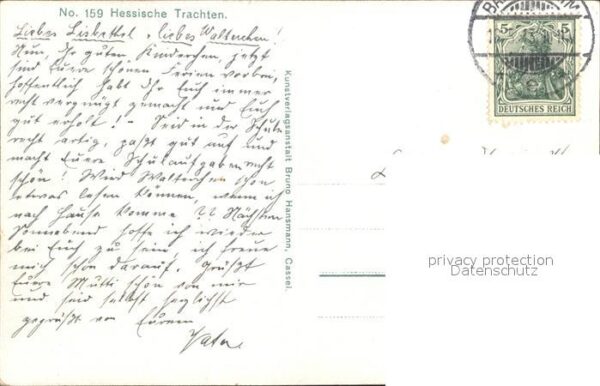 No. 159 Hessische Trachten.
Liebes Lisbethel, liebes Walterchen!
Nun, Ihr guten Kinderchen, jetzt
sind Euere schönen Ferien vorbei,
hoffentlich habt Ihr Euch immer
recht vergnügt gemacht und Euch
gut erholt! - Seid in der Schule
recht artig, paßt gut auf und
macht Euere Schulaufgaben recht
schön! Wird Walterchen schon
etwas lesen können, wenn ich
nach Hause komme? Nächsten
Sonnabend hoffe ich wieder
bei Euch zu sein, ich freue
mich schon darauf. Grüßt
Euere Mutti schön von mir
und seid selbst herzlichst
gegrüßt von Eurem
Vater
Kunstverlagsanstalt Bruno Hansmann, Cassel.
5 5
DEUTSCHES REICH
privacy protection
Datenschutz